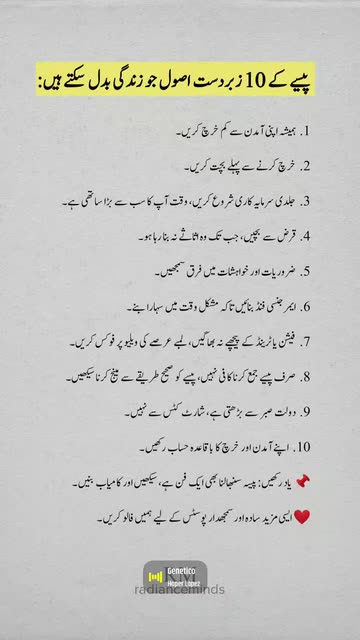 پیسے کے 10 زبردست اصول جو زندگی بدل سکتے ہیں:
1. ہمیشہ اپنی آمدن سے کم خرچ کریں۔
2. خرچ کرنے سے پہلے بچت کریں۔
3. جلدی سرمایہ کاری شروع کریں، وقت آپ کا سب سے بڑا ساتھی ہے۔
4. قرض سے بچیں، جب تک وہ اثاثے نہ بنا رہا ہو۔
5. ضروریات اور خواہشات میں فرق سمجھیں۔
6. ایمرجنسی فنڈ بنائیں تاکہ مشکل وقت میں سہارا بنے۔
7. فیشن یا ٹرینڈ کے پیچھے نہ بھاگیں، لمبے عرصے کی ویلیو پر فوکس کریں۔
8. صرف پیسے جمع کرنا کافی نہیں، پیسے کو صحیح طریقے سے مینج کرنا سیکھیں۔
9. دولت صبر سے بڑھتی ہے، شارٹ کٹس سے نہیں۔
10. اپنے آمدن اور خرچ کا باقاعدہ حساب رکھیں۔
📌 یاد رکھیں: پیسہ سنبھالنا بھی ایک فن ہے، سیکھیں اور کامیاب بنیں۔
❤️ ایسی مزید سادہ اور سمجھدار پوسٹس کے لیے ہمیں فالو کریں۔
Genetico
Hoper Lopez
radianceminds